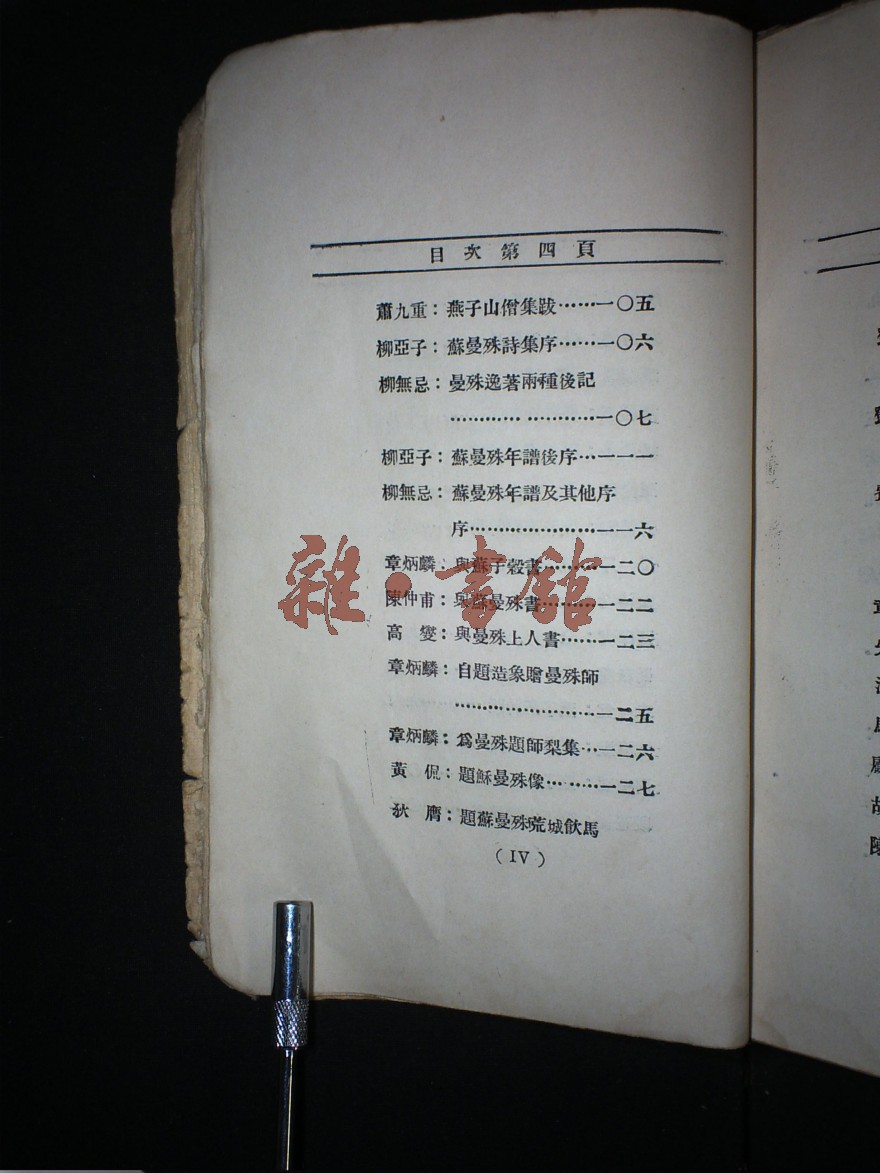 目次第四頁
蕭九重：燕子山僧集跋……一〇五
柳亞子：蘇曼殊詩集序……一〇六
柳無忌：曼殊逸著兩種後記
…………………一〇七
柳亞子：蘇曼殊年譜後序…一一一
柳無忌：蘇曼殊年譜及其他序
序……………………一一六
章炳麟：與蘇子穀書………一二〇
陳仲甫：與蘇曼殊書………一二二
高 燮：與曼殊上人書……一二三
章炳麟：自題造象贈曼殊師
……………………一二五
章炳麟：爲曼殊題師梨集…一二六
黃 侃：題穌曼殊像………一二七
狄 膺：題蘇曼殊荒城飲馬
(IV)
雜·書館